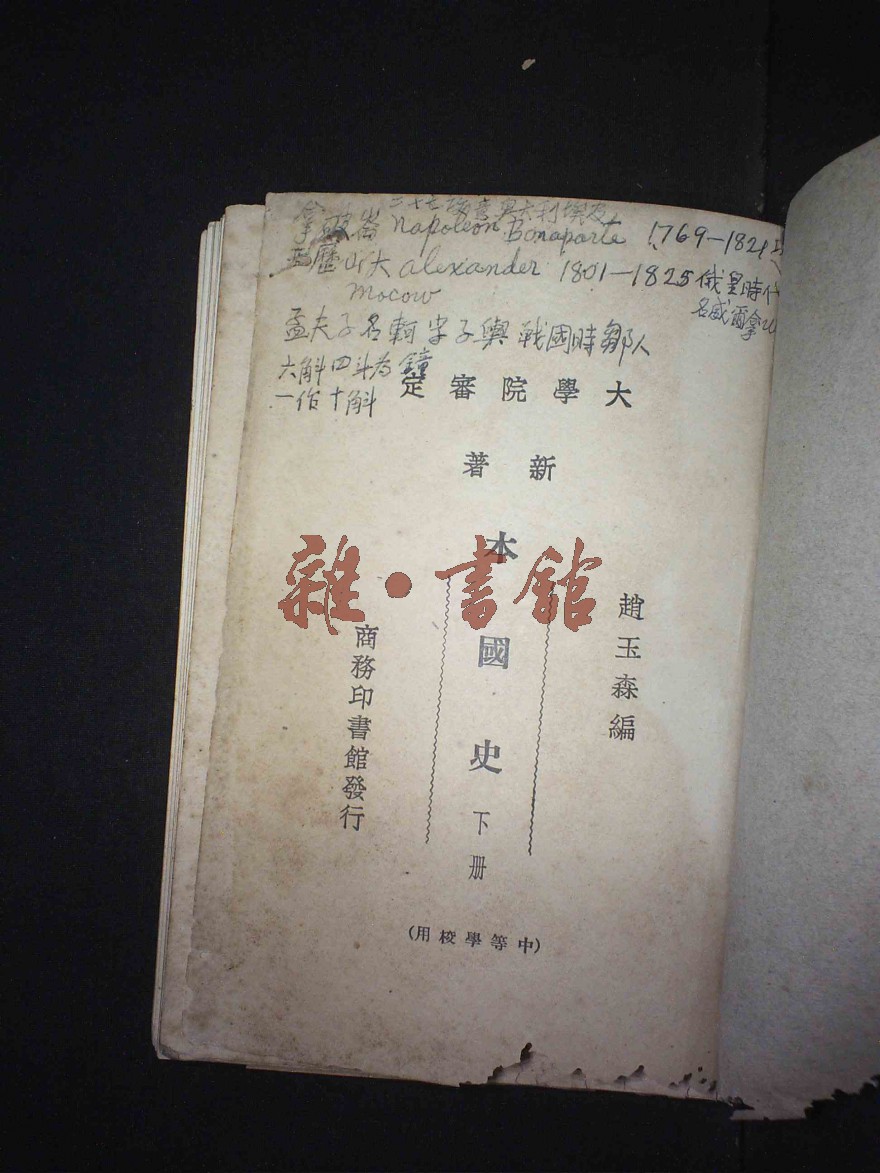 拿破崙 Napoleon Bonaparte 1769—1821
亞歷山大 alexander 1801—1825 俄皇時代
mocow
名威爾拿
孟夫子名軻字子輿戰國時鄒人
六斛四斗為鐘
一作十斛
大學院審定
新著
本國史
下册
趙玉森編
商務印書館發行
(中等學校用)
雜·書館